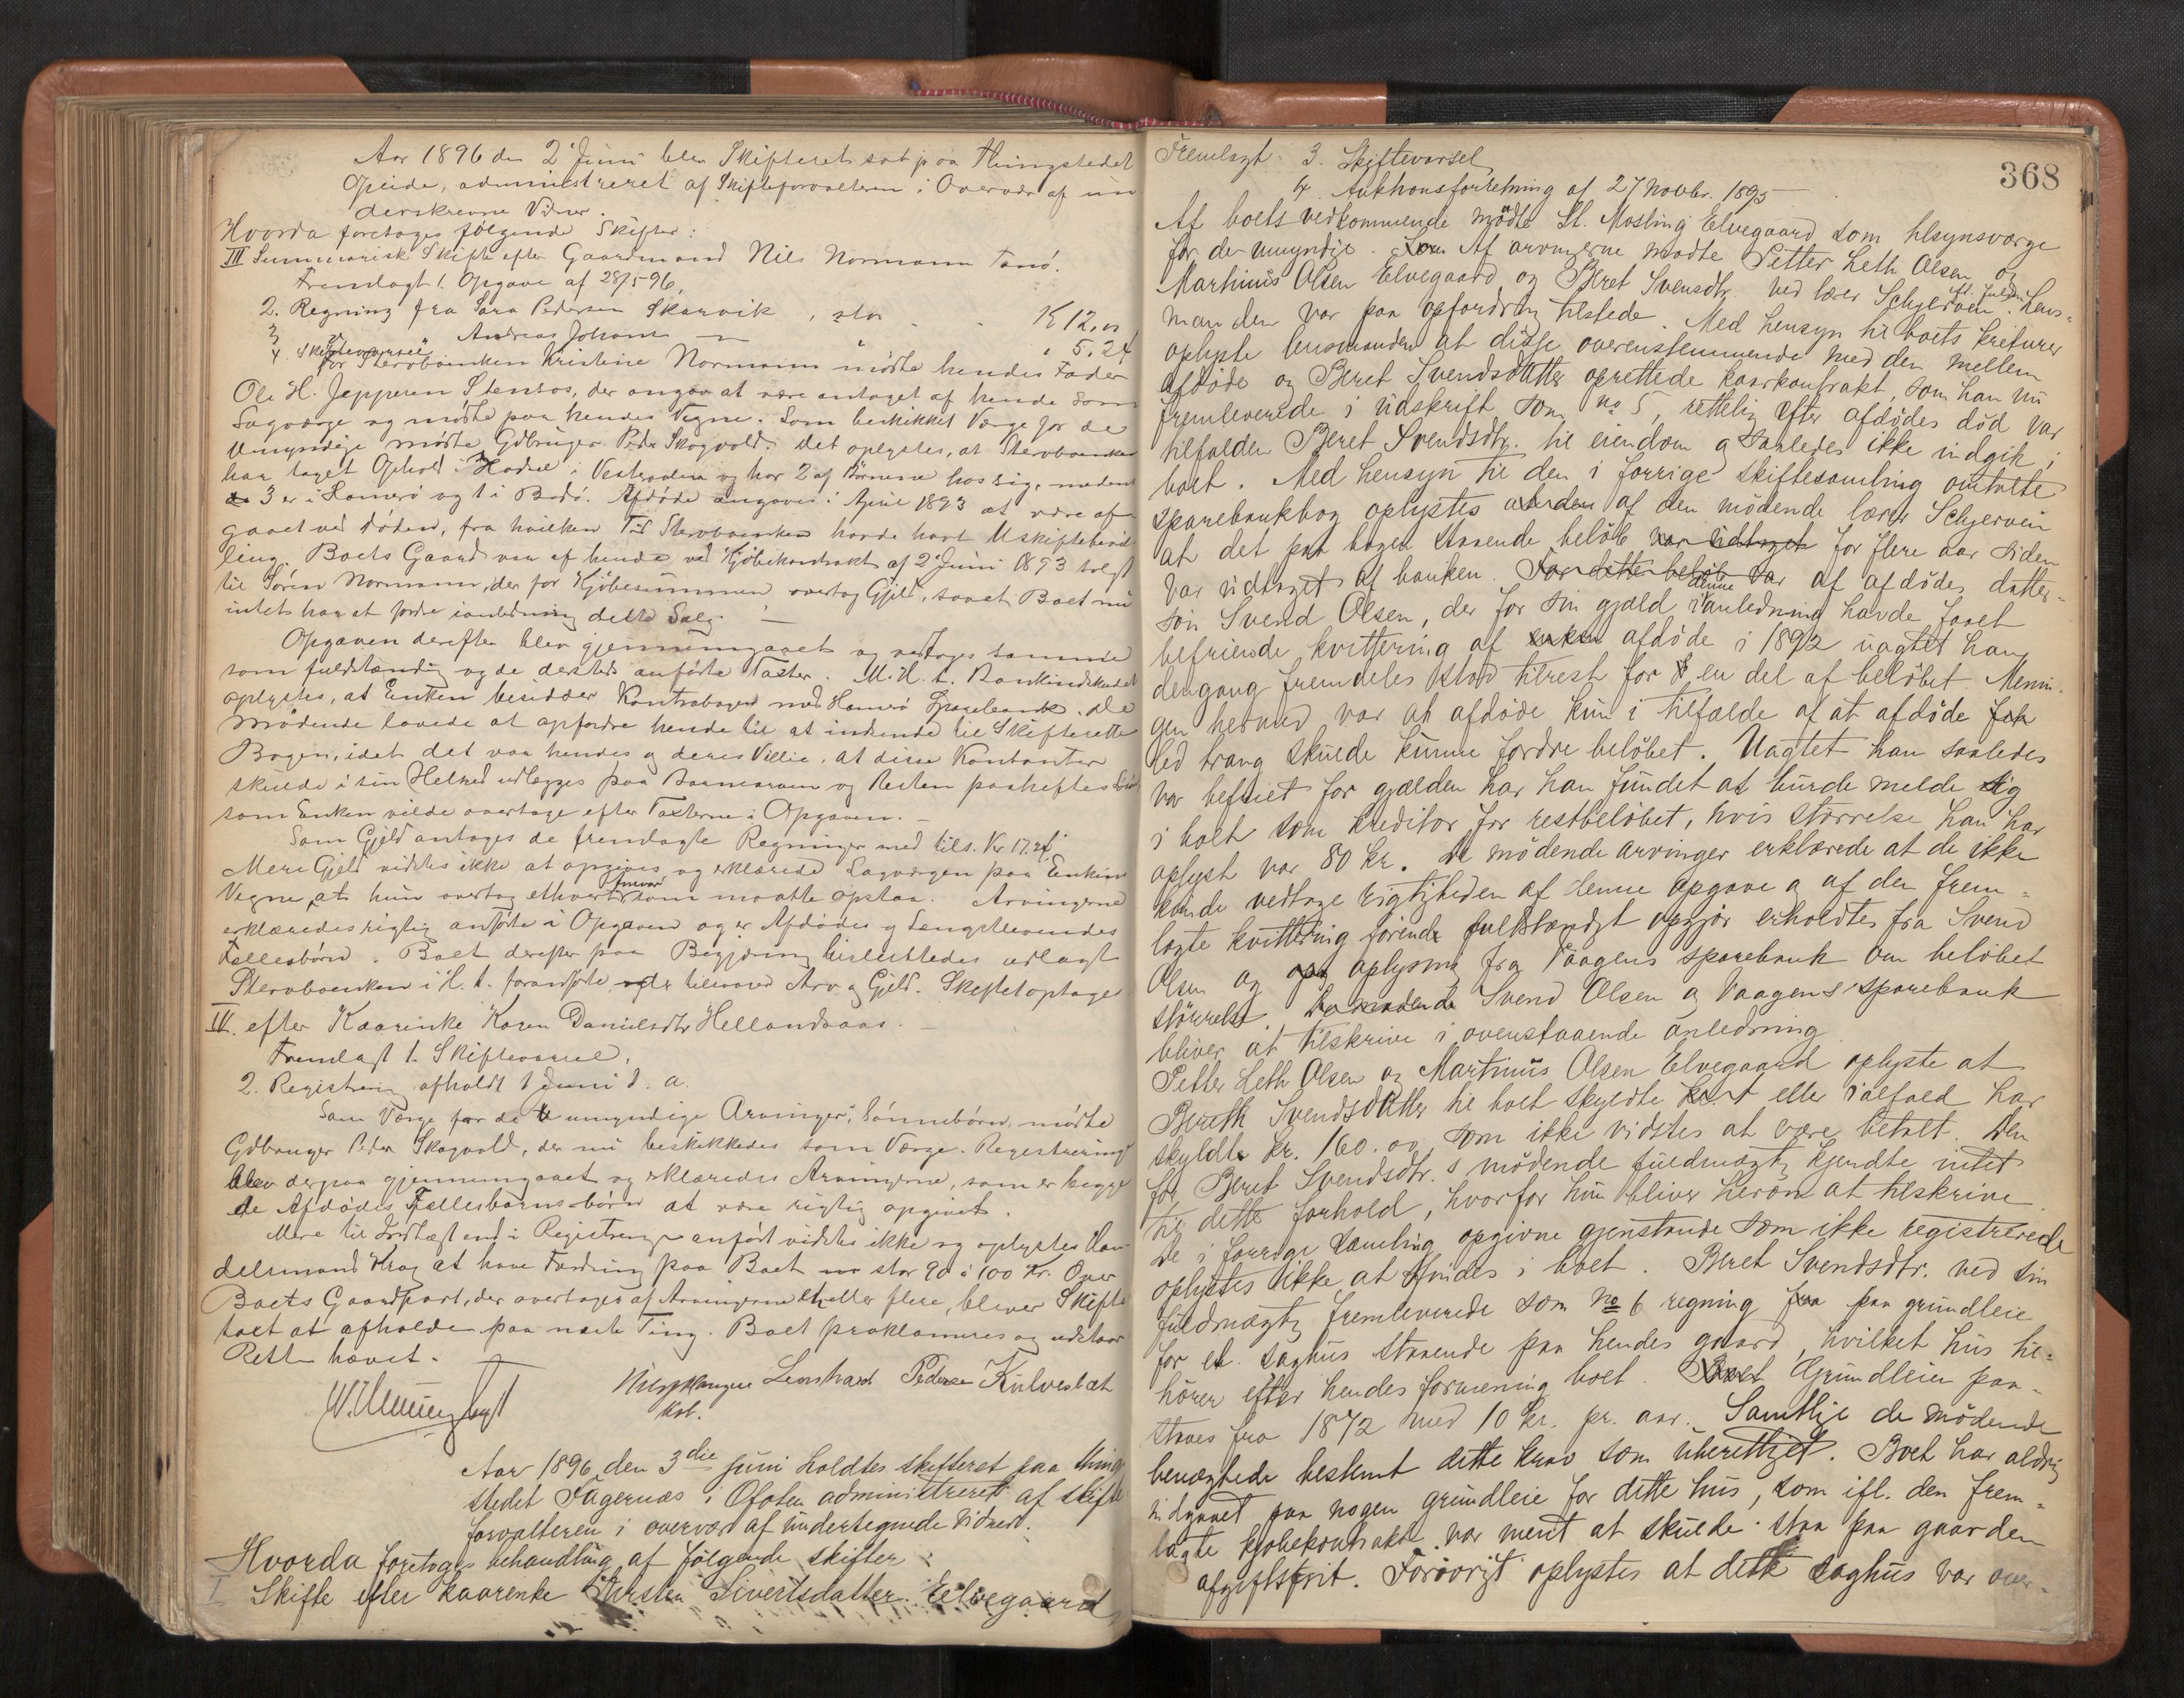 Aar 1896 den 2' Juni blev Skifteret sat paa Thingstedet
Opeide, administreret af Skifteforvalteren i Overvær af un
derskrevne Vidner.
Hvorda foretoges følgende Skifter:
III Summarisk Skifte efter Gaardmand Nils Normann Tanø.
Fremlagt 1. Opgave af 28/5-96,
2. Regning fra Sara Pedersen Skarvik, stor K 12,00
3 Andreas Johans " 5.24
4. Skiftevarsel
For Stervboenken Kristine Normann mødte hendes Fader
Ole H. Jeppesen Stensos, der angav at være antaget af hende som
Lagværge og mødte paa hendes Vegne. Som beskikket Værge for de
Umyndige mødte Gdbruger Peder Skogvold. Det oplystes, at Stervboenken
har taget Ophold i Hadsel i Vesteraalen og har 2 af Børnene hos sig, medens
3 er i Hamerø og 1 i Bodø. Afdøde angaves i April 1893 at være af
gaaet ved Døden, fra hvilken Tid Stervboenken havde havt Uskiftebevil
ling. Boets Gaard var af hende ved Kjøbekontrakt af 2' Juni 1893 solgt
til Søren Normann, der for Kjøbesummen overtog Gjeld, saaat Boet nu
intet har at fordre ianledning dette Salg. —
Opgaven derefter blev gjennemgaaet og vedtoges samme
som fuldstændig og de dersteds anførte Taxter. M. H. t. Bankindskudet
oplystes, at Enken besidder Kontrabogen med Hamerø Sparebank. De
Mødende lovede at opfordre hende til at indsende til Skifteretten
Bogen, idet det var hendes og deres Villie, at disse Kontanter
skulde i sin Helhed udlægges paa Barnearven og Resten paaheftes
som Enken vilde overtage efter Taxterne i Opgaven. —
Som Gjeld antages de fremlagte Regninger med tils. Kr 17.24.
Mere Gjeld vidstes ikke at opgives, og erklærede Lagværgen paa Enkens
Vegne, at hun overtog ethvert ansvar som maatte opstaa. Arvingerne
erklæredes rigtig anførte i Opgaven og er Afdødes og Længstlevendes
Fællesbørn. Boet derefter paa Begjæring besluttedes udlagt
Stervboenken i H. t. foranførte mod tilsvar Arv og Gjeld. Skiftet optages
IV. efter Kaarenke Karen Danielsdtr Hellandsaas.
Fremlagt 1. Skiftevarsel,
2. Registrering afholdt 1 Juni d. a.
Som Værge for de umyndige Arvinger, Sønnebørn, mødte
Gdbruger Peder Skogvold, der nu beskikkedes som Værge. Registrering
blev derpaa gjennemgaaet og erklæredes Arvingerne, som er begge
de Afdødes Fællesbarns-børn at være rigtig opgivet.
Mere til Indtægt end i Registreringen anført vidstes ikke og oplystes Han-
delsmand Krog at have Fordring paa Boet stor 90 à 100 Kr. Over
Boets Gaardpart, der overtages af Arvingerne eller flere, bliver Skifte
taxt at afholde paa næste Ting. Boet proklameres og udstaar
Retten hævet.
Leonhard Pedersen Kulvestat
Aar 1896 den 3die Juni holdtes skifteret paa thing
stedet Fagernæs i Ofoten administreret af skifte
forvalteren i overvær af undertegnede vidner.
Hvorda foretoges behandling af følgende skifter:
I Skifte efter kaarenke Kirsten Sivertsdatter Elvegaard
368
Fremlagt 3. Skiftevarsel
4. Auktionsforretning af 27 novbr. 1895
Af boets vedkommende mødte St. Mosling Elvegaard som tilsynsværge
for de umyndige. Som Af arvingerne mødte Petter Leth Olsen og
Martinus Olsen Elvegaard og Beret Svensdtr ved lærer Schjerven ifl. fuldm. Lens-
manden var paa opfordring tilstede. Med hensyn til boets kreturer
oplyste lensmanden at disse overensstemmende med den mellem
afdøde og Beret Svendsdatter oprettede kaarkontrakt, som han nu
fremleverede i udskrift som no 5, rettelig efter afdødes død var
tilfalden Beret Svendsdtr. til eiendom og saaledes ikke indgik i
boet. Med hensyn til den i forrige skiftesamling omtalte
sparebankbog oplystes af den mødende lærer Schjerven
at det paa bogen staaende beløb var udtaget for flere aar siden
var udtaget af banken. For dette beløb var af afdødes datter-
søn Svend Olsen, der for sin gjæld i denne anledning havde faaet
befriende kvittering af afdøde i 1892 uagtet han
dengang fremdeles stod tilrest for en del af beløbet. Menin-
gen herved var at afdøde kun i tilfælde af at afdøde
led trang skulde kunne fordre beløbet. Uagtet han saaledes
var befriet for gjælden har han fundet at burde melde sig
i boet som kreditor for restbeløbet, hvis størrelse han har
oplyst var 80 kr. De mødende arvinger erklærede at de ikke
kunde vedtage rigtigheden af denne opgave og af den frem-
lagte kvittering førende fuldstændigt opgjør erholdtes fra Svend
Olsen og oplysning fra Vaagens sparebank om beløbet
størrelse. De mødende Svend Olsen og Vaagens sparebank
bliver at tilskrive i ovenstaaende anledning.
Petter Leth Olsen og Martinus Olsen Elvegaard oplyste at
Bereth Svendsdatter til boet skyldte eller ialfald har
skyldt kr. 160.00 som ikke vidstes at være betalt. Den
for Beret Svendsdtr.s mødende fuldmægtig kjendte intet
til dette forhold, hvorfor hun bliver herom at tilskrive.
De i forrige samling opgivne gjenstande som ikke registrerede
oplystes ikke at findes i boet. Beret Svendsdtr. ved sin
fuldmægtig fremleverede som No 6 regning fra paa grundleie
for et saghus staaende paa hendes gaard, hvilket hus til-
hører efter hendes formening boet. Boet Grundleien paa-
staaes fra 1872 med 10 kr. pr. aar. Samtlige de mødende
benægtede bestemt dette krav som uberettiget. Boet har aldrig
indgaaet paa nogen grundleie for dette hus, som ifl. den frem-
lagte kjøbekontrakt var ment at skulde staa paa gaarden
afgiftsfrit. Forøvrigt oplystes at dette saghus var over-